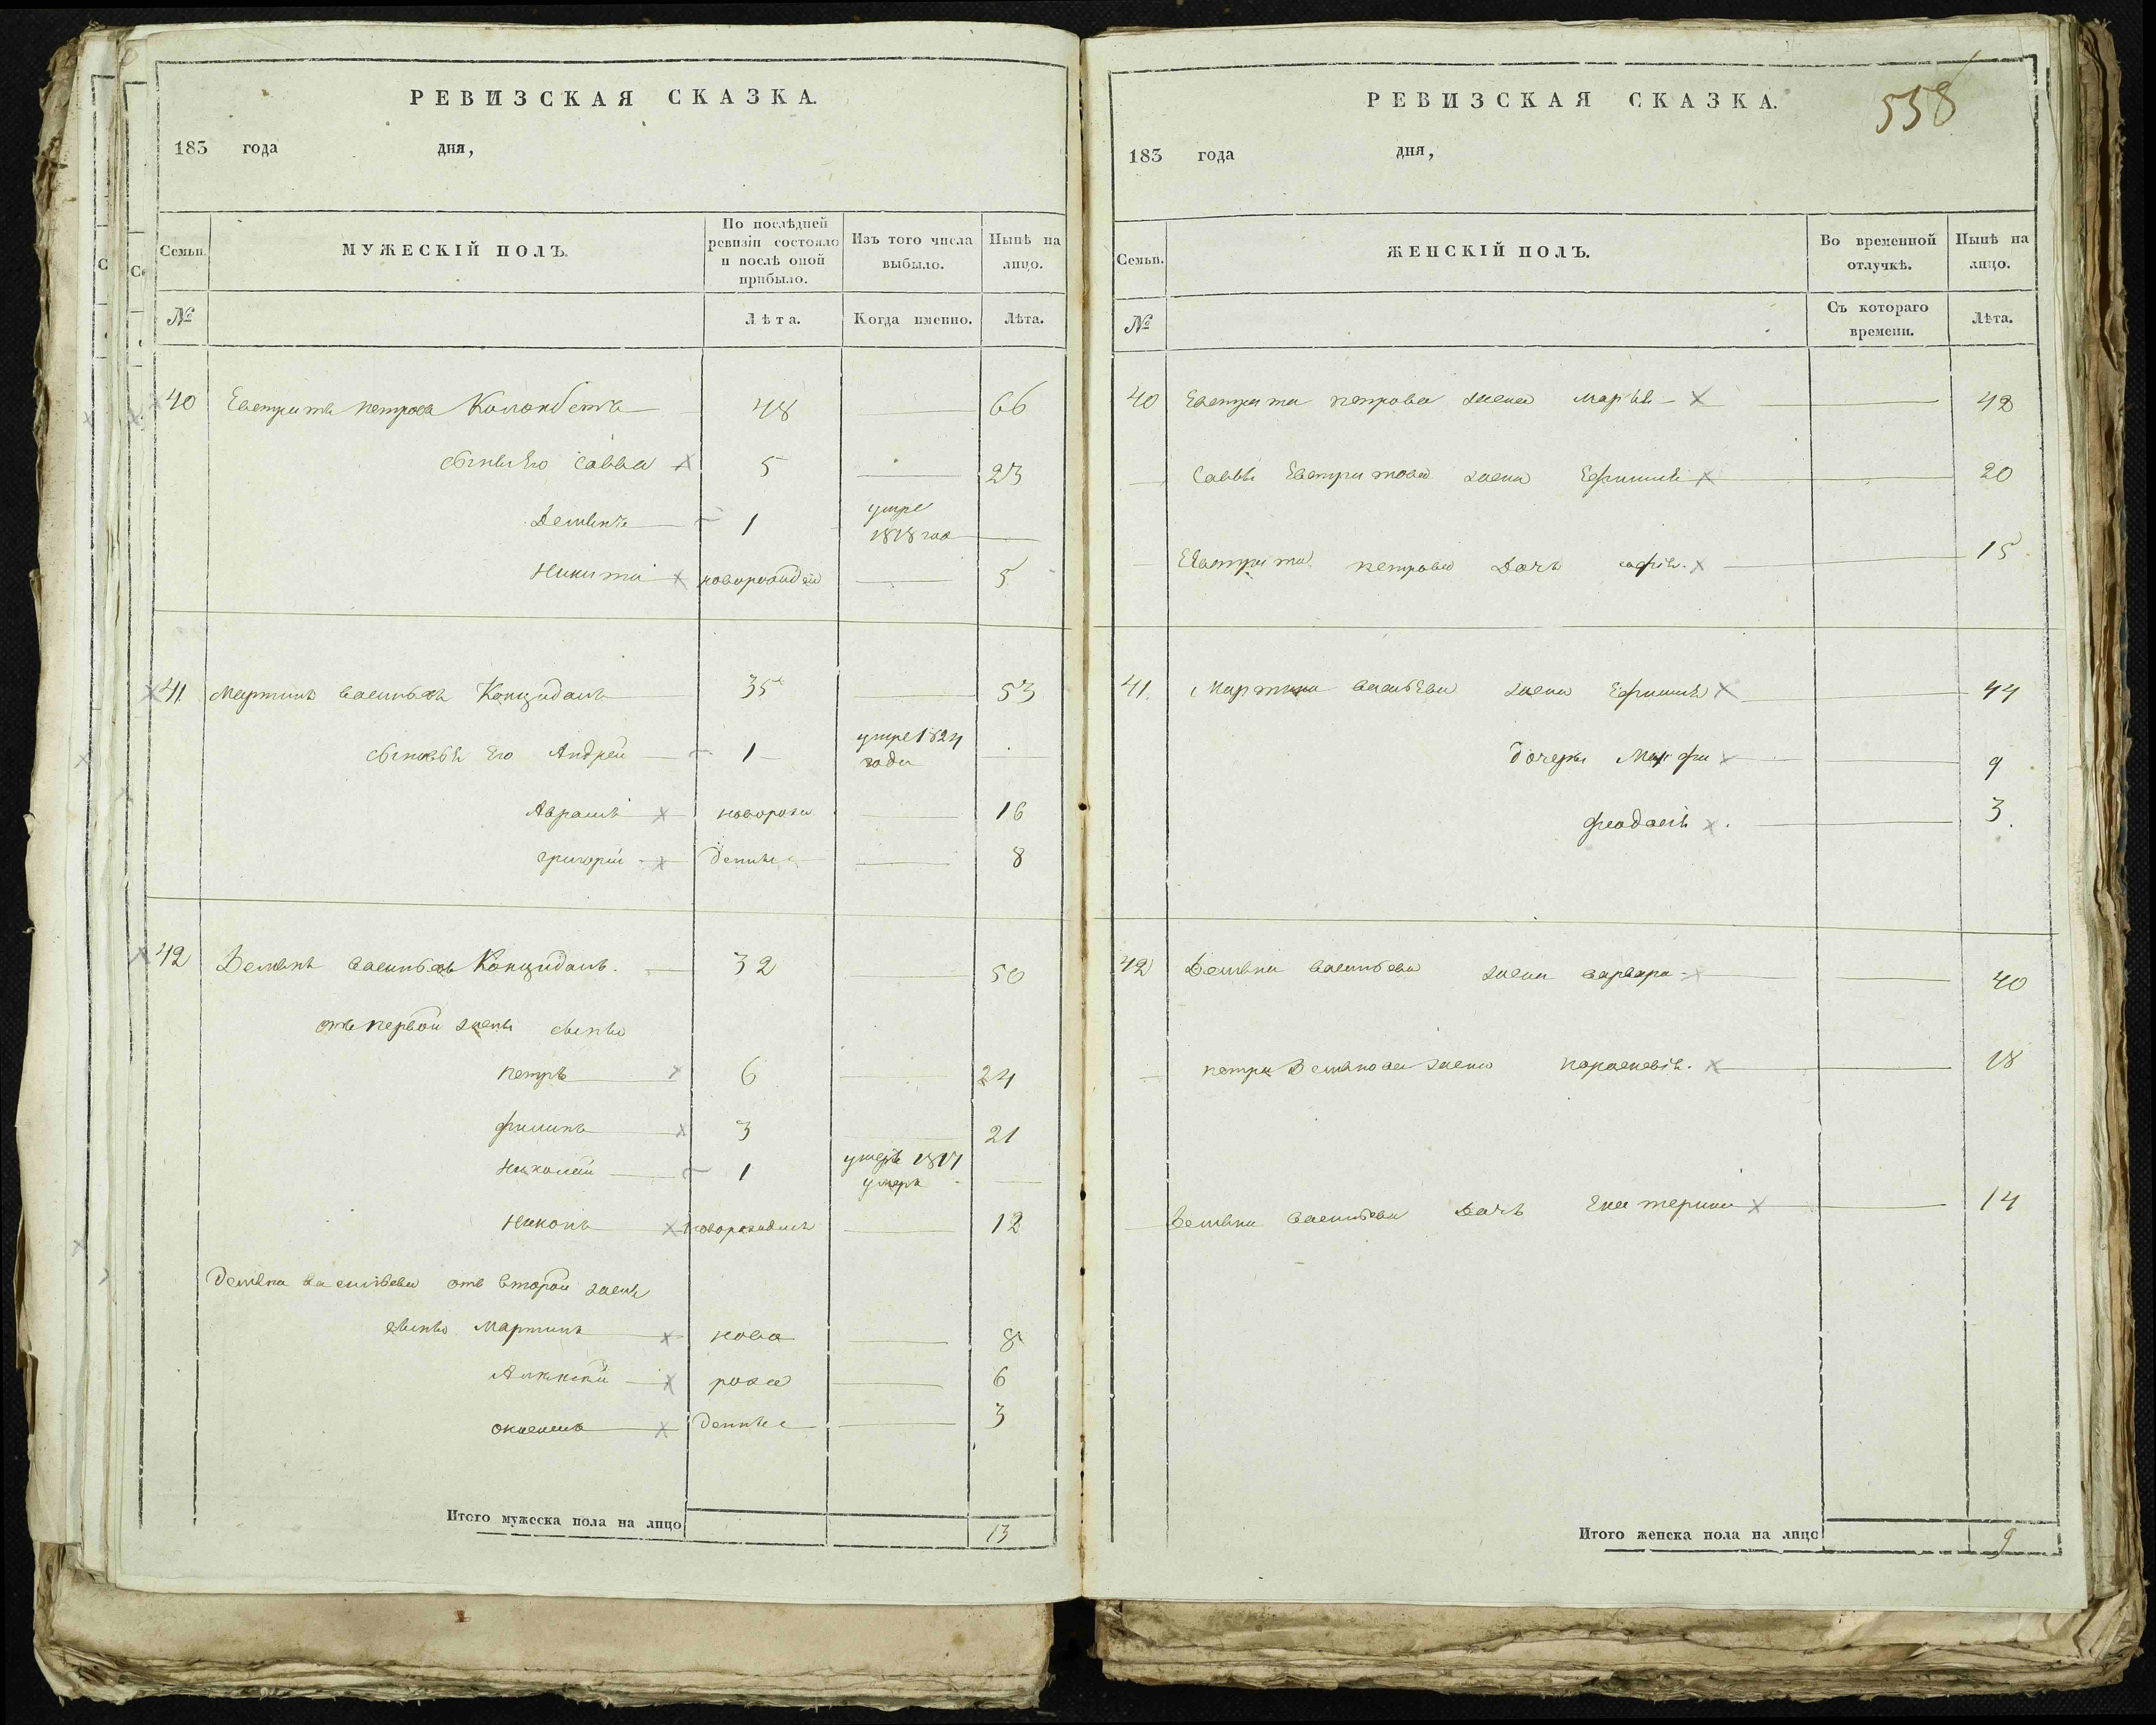 РЕВИЗСКАЯ СКАЗКА.
183 года дня,
Семьи. МУЖЕСКІЙ ПОЛЪ. По послѣдней ревизіи состояло и послѣ оной прибыло. Изъ того числа выбыло. Нынѣ на лицо.
№ Лѣта. Когда именно. Лѣта.
40 Евстрата петровъ 48 66
сынъ Его Савва 5 23
Демянъ 1 умре 1818 года
Никита новорожден 5
41 Мартинъ васильевъ Конциданъ 35 53
сыновья Его Андрей 1 умре 1824 года
Аврамъ новорож 16
григорій денные 8
42 Демянъ васильевъ Конциданъ. 32 50
отъ первой жены сынъ
петръ 6 24
филипъ 3 21
николай 1 умеръ
никонъ новорожденъ 12
Демяна васильева отъ второй жены
сынъ Мартинъ ново 8
Алексей рож 6
денные 3
Итого мужеска пола на лицо 13
РЕВИЗСКАЯ СКАЗКА.
558
183 года дня,
Семьи. ЖЕНСКІЙ ПОЛЪ. Во временной отлучкѣ. Нынѣ на лицо.
№ Съ котораго времени. Лѣта.
40 Евстрата петрова жена марья 42
Саввы Евстратова жена Ефимия 20
Евстрата петрова дочь софія. 15
41. Мартина васильева жена Ефимия 44
дочеры Марфа 9
феодосія 3
42 Демяна васильева жена варвара 40
петра Демянова жена парасковія. 18
Демяна васильева дочь Екатерина 14
Итого женска пола на лицо 9